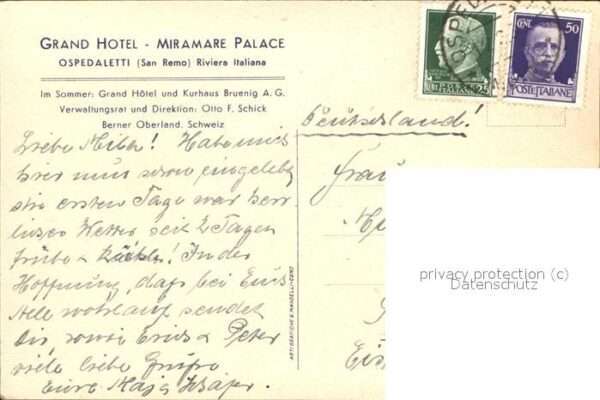 GRAND HOTEL - MIRAMARE PALACE
OSPEDALETTI (San Remo) Riviera Italiana
Im Sommer: Grand Hôtel und Kurhaus Bruenig A. G.
Verwaltungsrat und Direktion: Otto F. Schick
Berner Oberland, Schweiz
Liebe Milh! Habe mich
hier nun schon eingelebt
die ersten Tage war herr
liches Wetter seit 2 Tagen
trübe & kühl! In der
Hoffnung, daß bei Euch
Alle wohlauf sendet
Dir, sowie Erich & Peter
viele liebe Grüße
Eure Maja Schäfer.
ARTI GRAFICHE S. MANCELLI-COMO
50
POSTE ITALIANE
Deutschland!
Frau
privacy protection (c)
Datenschutz